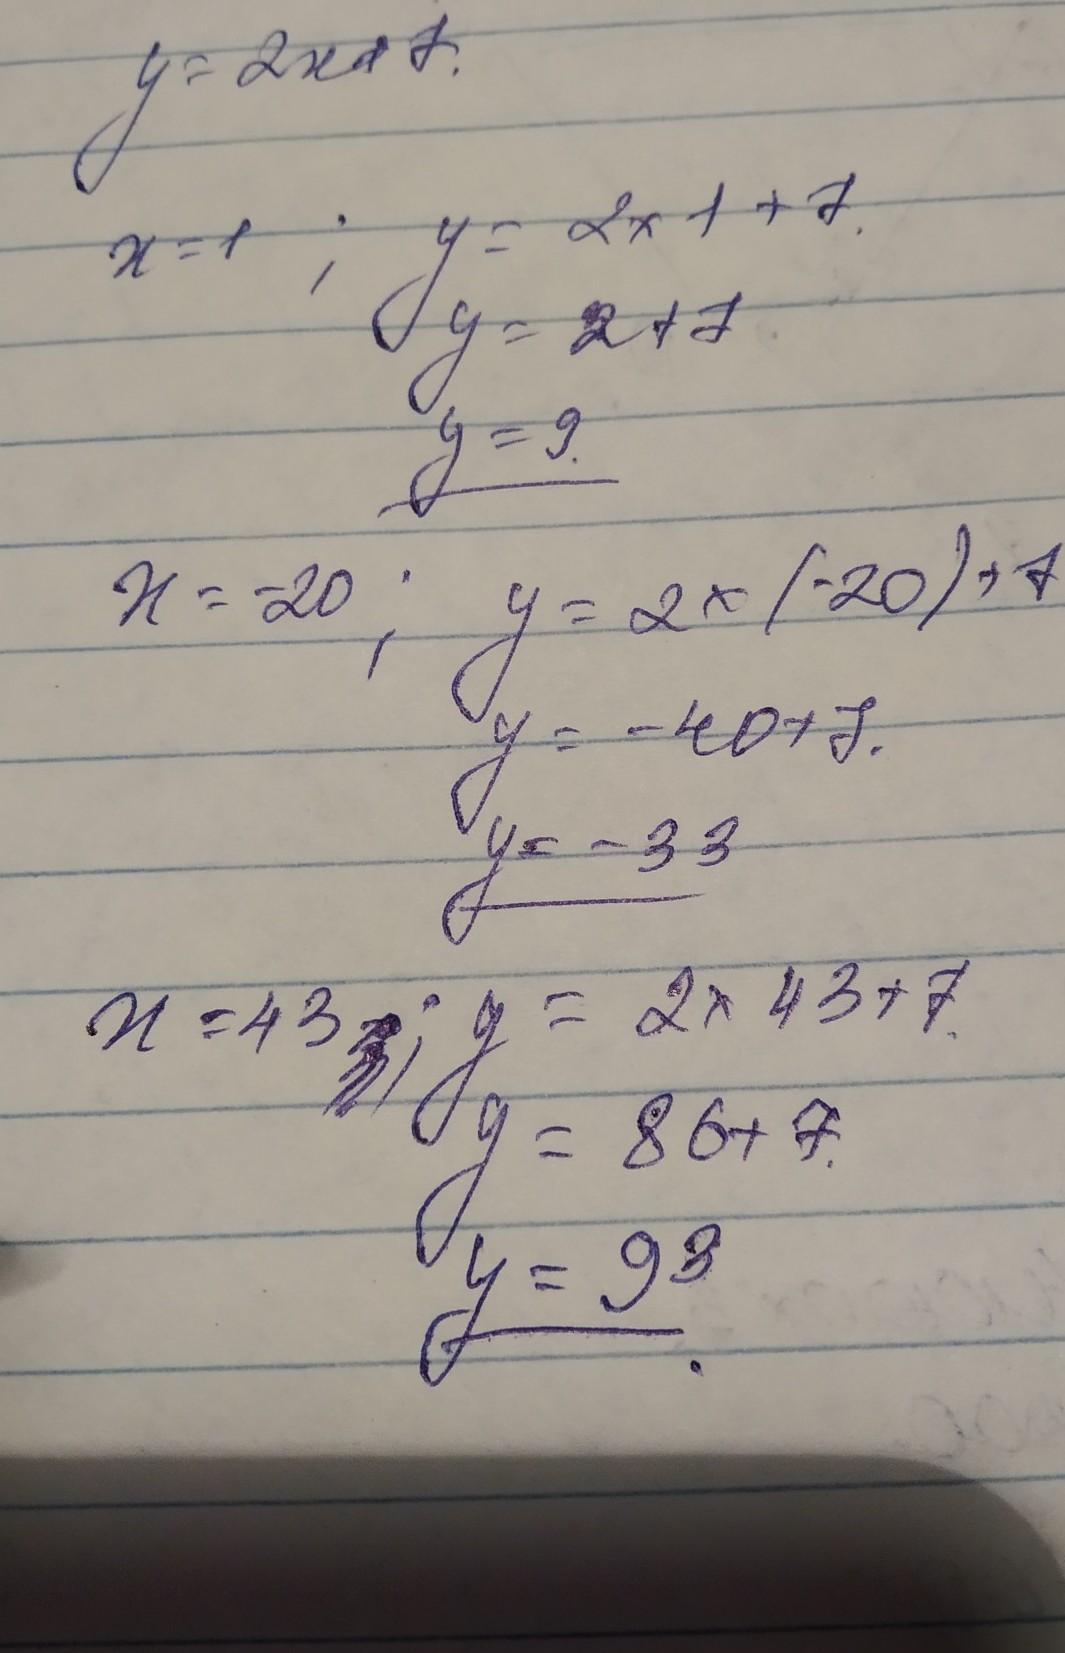 y = 2x + 7.
x = 1 ; y = 2 × 1 + 7.
y = 2 + 7
y = 9.
x = -20 ; y = 2 × (-20) + 7
y = -40 + 7.
y = -33
x = 43 ; y = 2 × 43 + 7.
y = 86 + 7.
y = 93